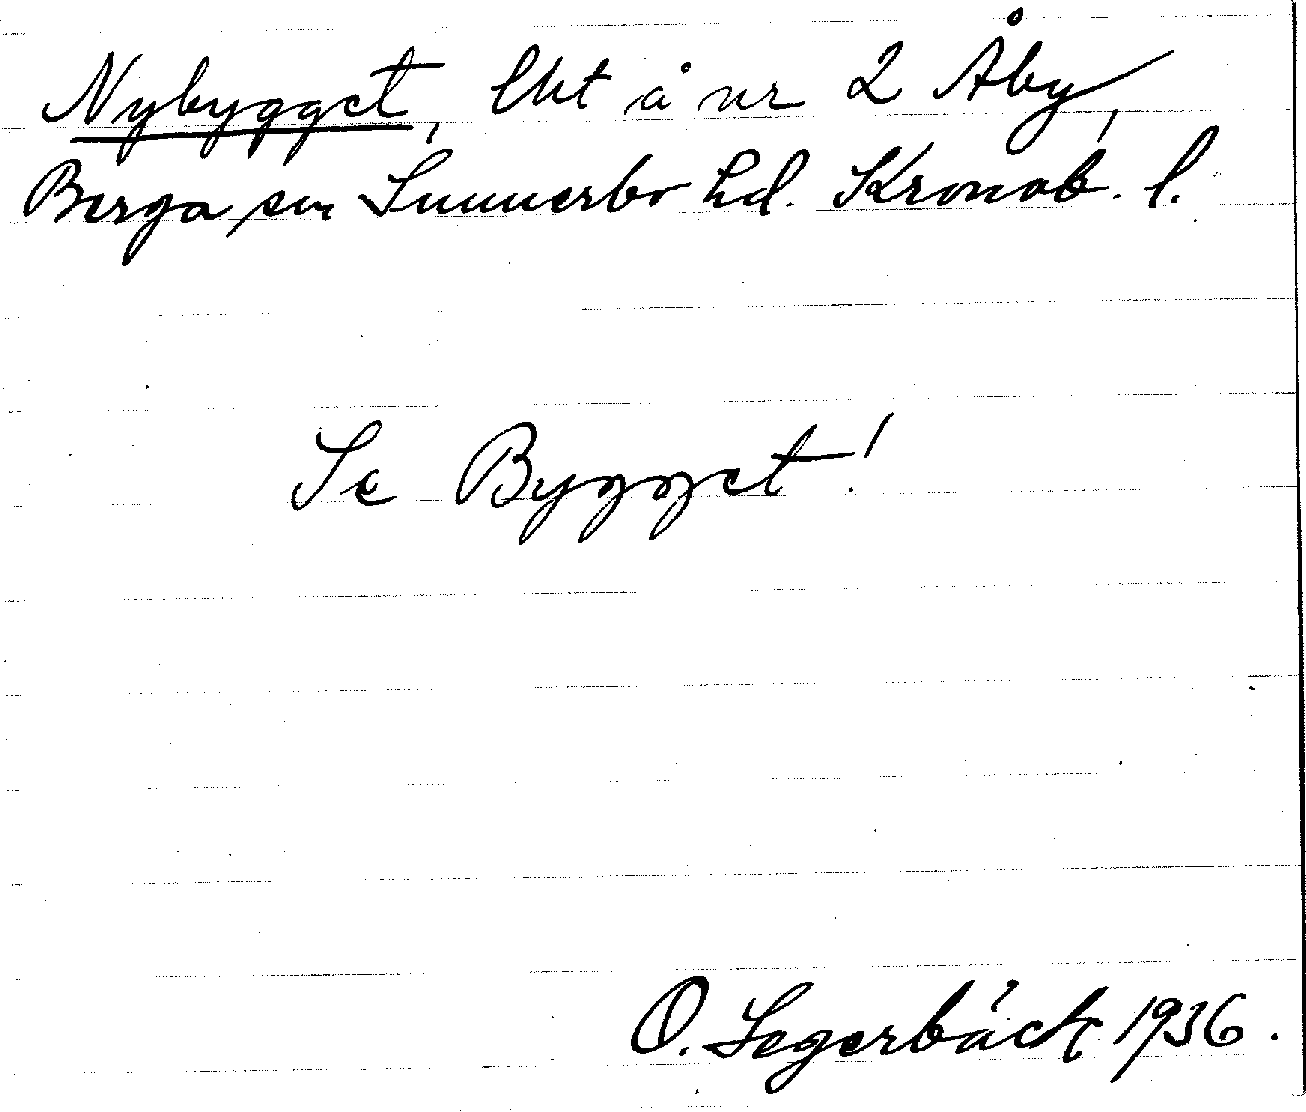 Nybygget, lht å nr 2 Åby,
Berga sn Sunnerbo hd. Kronob. l.
Se Bygget!
O. Segerbäck 1936.